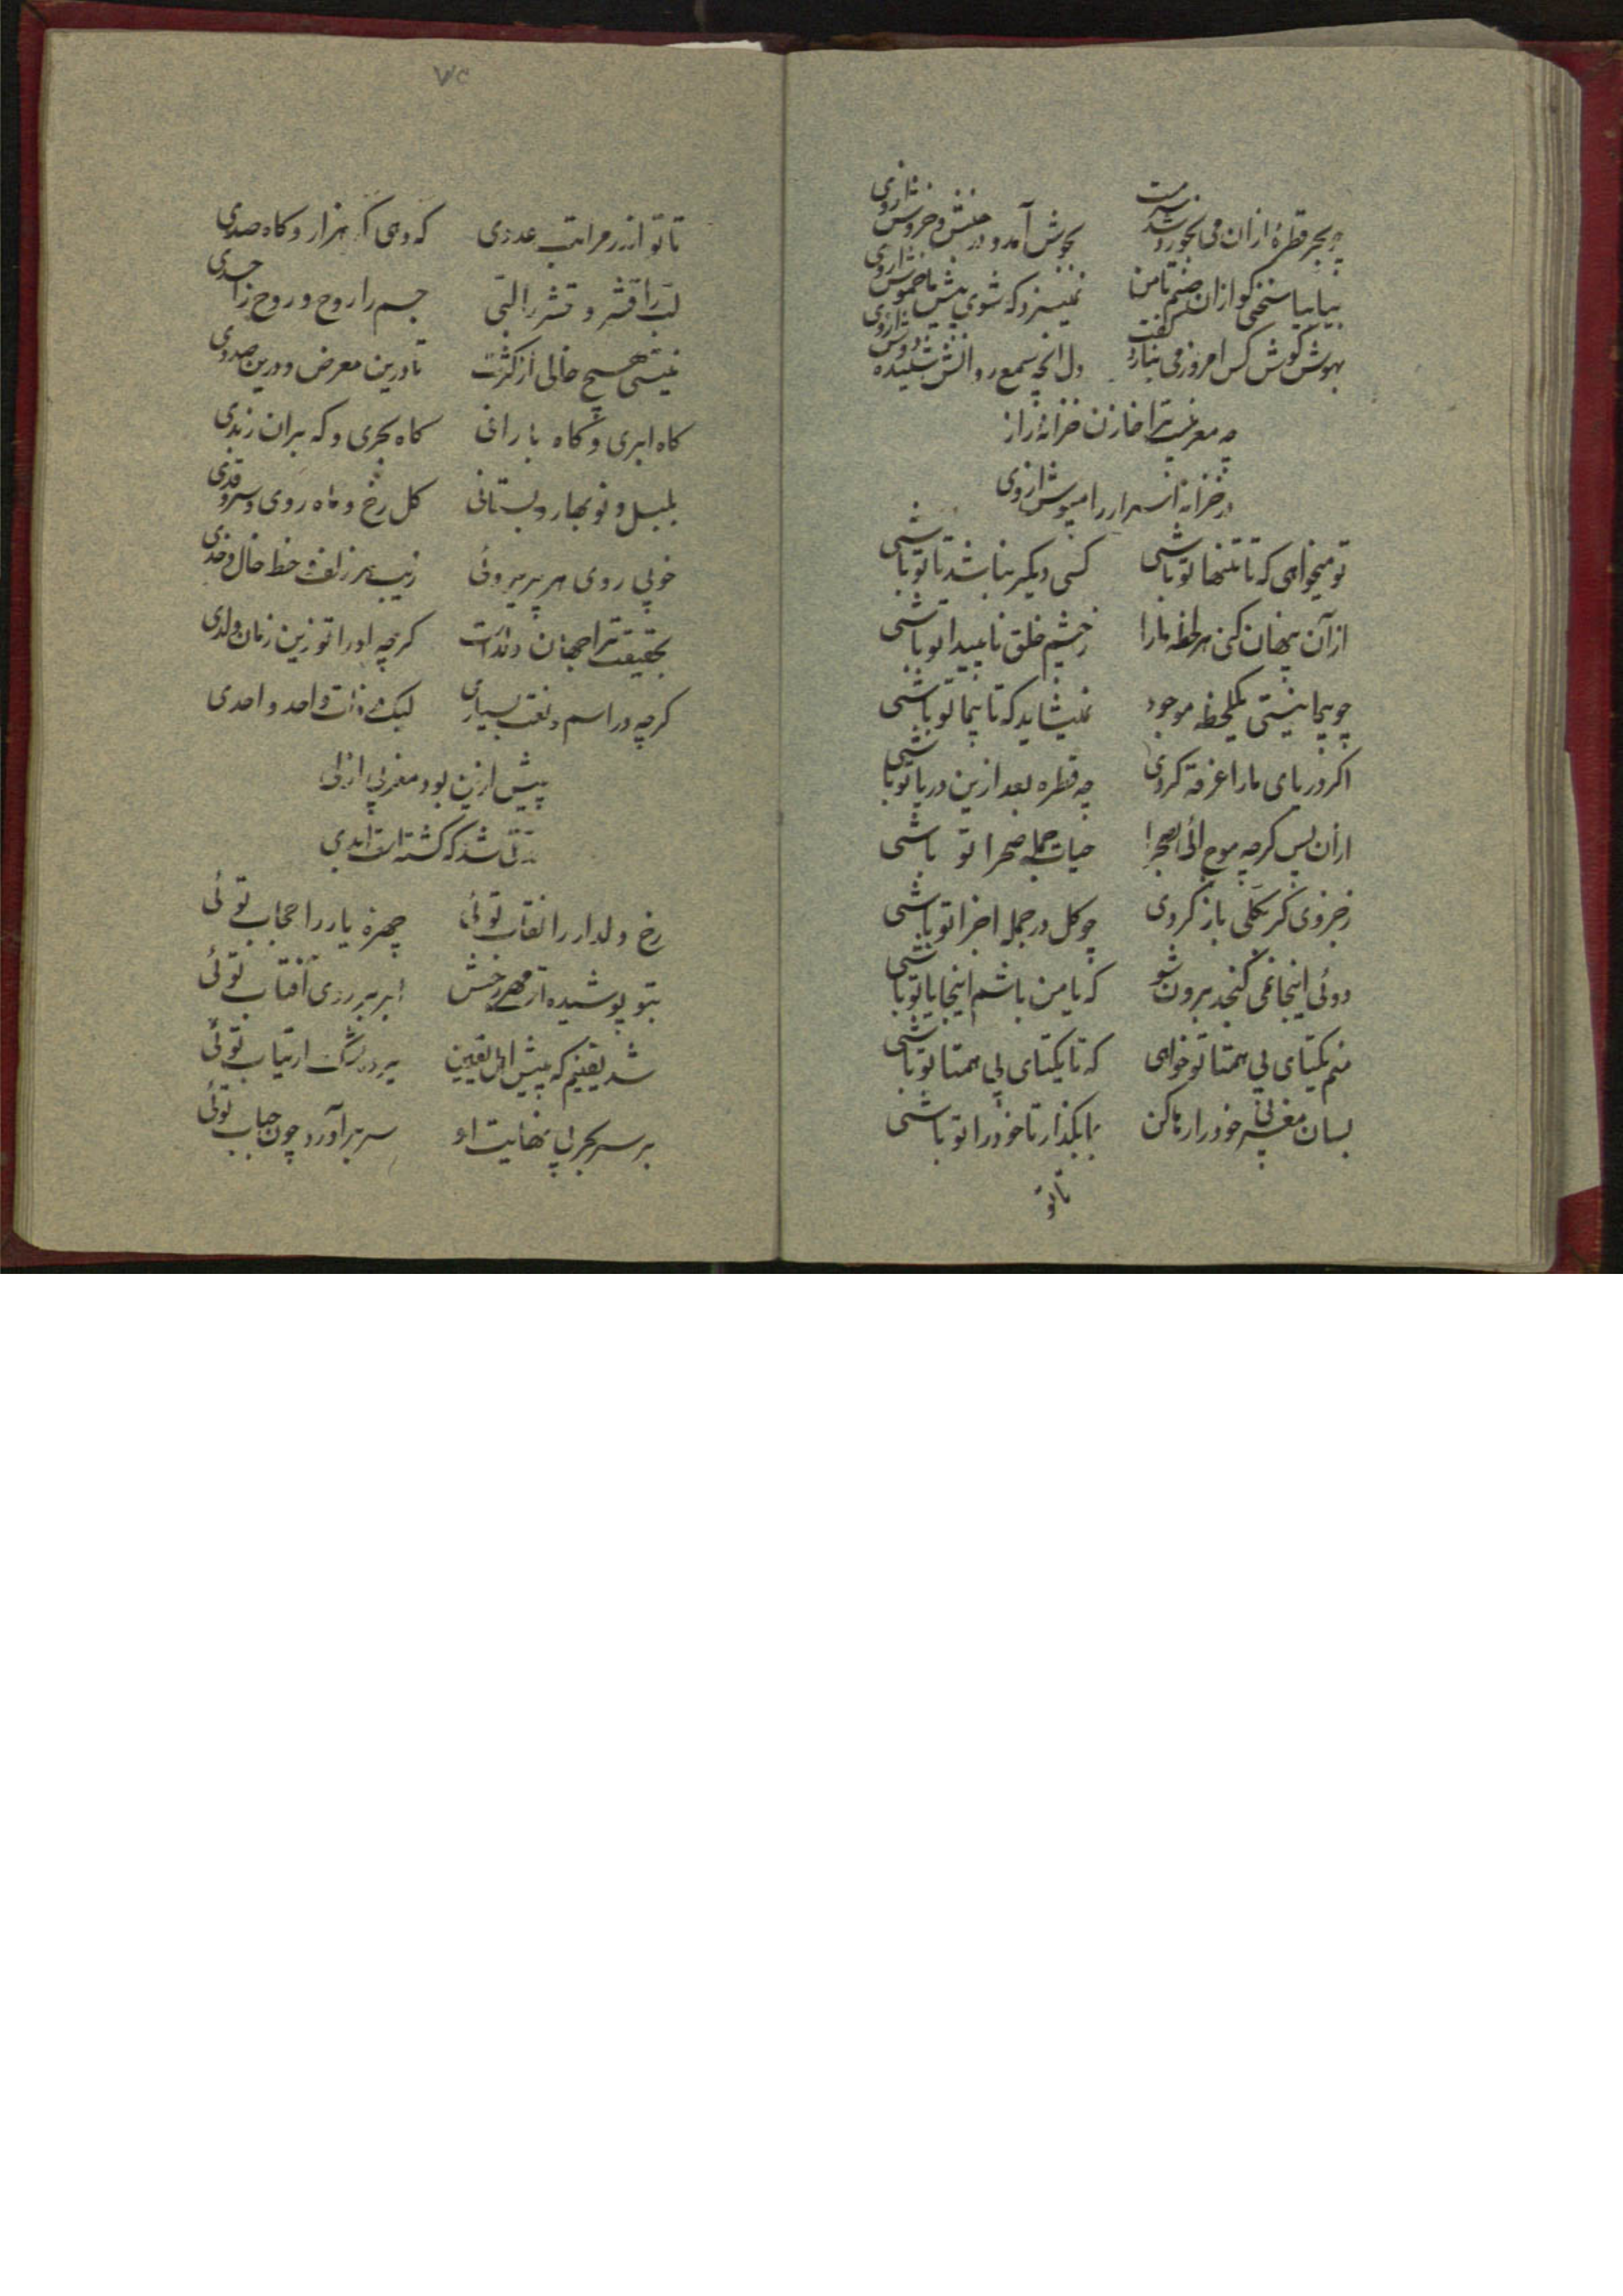 چو بحر قطرهٔ ازان می بخورد و شد سرمست بجوش آمد و در جنبش و خروش ازوی
بیا بیا سخنی کو ازان صنم تا من نمیسزد که شوی بیش تا خموش ازوی
بهوش گوش کس امروز می نیارد گفت دل آنچه سمع روانش شنیده دوش ازوی
چه مغربیست ترا خازن خزانهٔ راز
در خزانه اسرار را مپوش ازوی
تو میخواهی که تا تنها تو باشی کسی دیگر نباشد تا تو باشی
از آن پنهان کنی هر لحظه مارا ز چشم خلق نا پیدا تو باشی
چو بیما نیستی یکلحظه موجود نمیشاید که تا بیما تو باشی
اگر دریای مارا غرقه کردی چه قطره بعد ازین دریا تو باشی
ازان پس گرچه موج ائی بصحرا حیات جمله صحرا تو باشی
ز جزوی گر بکلی باز کردی چو کل در جمله اجزا تو باشی
دوئی اینجا نمی کنجد برون شو که تا من باشم اینجا یا تو باشی
منم یکتای بی همتا تو خواهی که تا یکتای بی همتا تو باشی
بسان مغربی خود را رها کن بما بگذار تا خود را تو باشی
تا تو
۷۲
تا تو از در مراتب عددی که دهی که هزار و کاه صدی
لب را قشر و قشر را لبّی جسم را روح و روح را جسدی
نیستی هیچ خالی از کثرت تا درین معرض و درین صددی
کاه ابری و کاه بارانی کاه بحری و که بران زبدی
بلبل و نو بهار و بستانی کل رخ و ماه روی و سرو قدی
خوبی روی هر پریروئی زیب هر زلف و خط خال و خدی
بحقیقت ترا جهان ولدست کرچه او را تو زین زمان ولدی
کرچه در اسم و نعت بسیاری لیک در ذات واحد و احدی
پیش ازین بود مغربی ازلی
مدتی شد که کشته است ابدی
رخ دلدار را نقاب توئی چهرهٔ یار را حجاب توئی
بتو پوشیده از مهر رخش ابر بر روی آفتاب توئی
شد یقینم که پیش اهل یقین پرده شک ارتیاب توئی
بر سر بحر بی نهایت او سر برآورد چون حباب توئی